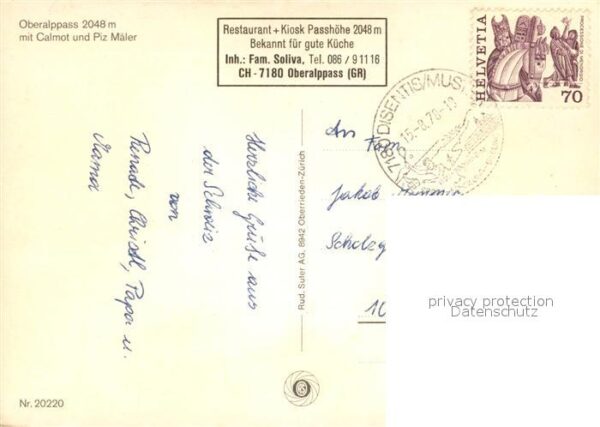 Oberalppass 2048 m
mit Calmot und Piz Mäler
Restaurant + Kiosk Passhöhe 2048 m
Bekannt für gute Küche
Inh.: Fam. Soliva, Tel. 086 / 9 11 16
CH - 7180 Oberalppass (GR)
HELVETIA
PROCESSIONE DI MENDRISIO
70
7180 DISENTIS/MUS
15-8.78-10
Herzliche Grüße aus
der Schweiz
von
Renate, Christl, Papa u.
Mama
Rud. Suter AG, 8942 Oberrieden-Zürich
An Fam
Jakob
10
privacy protection
Datenschutz
Nr. 20220